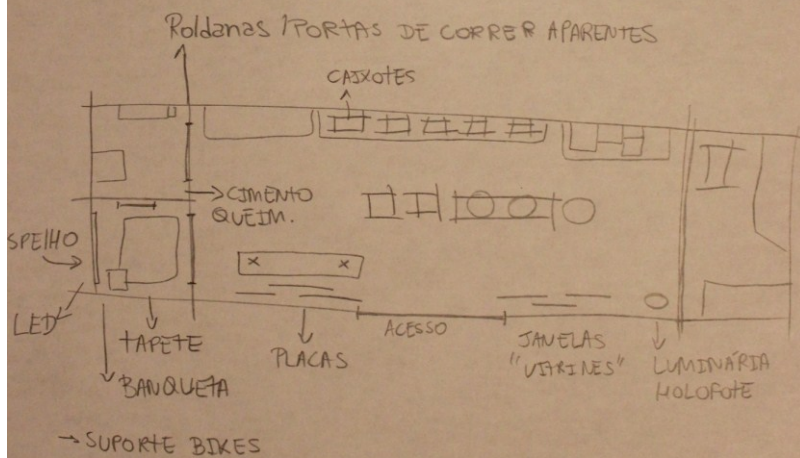 Roldanas / PORTAS DE CORRER APARENTES
CAIXOTES
CIMENTO
QUEIM.
SPELHO
LED
TAPETE
BANQUETA
PLACAS
ACESSO
JANELAS
"VITRINES"
LUMINÁRIA
HOLOFOTE
→ SUPORTE BIKES